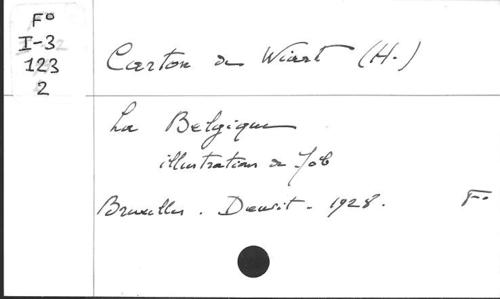 F°
I-3
123
2
Carton de Wiart (H.)
La Belgique
illustrations de Job
Bruxelles. Dewit. 1928. F°